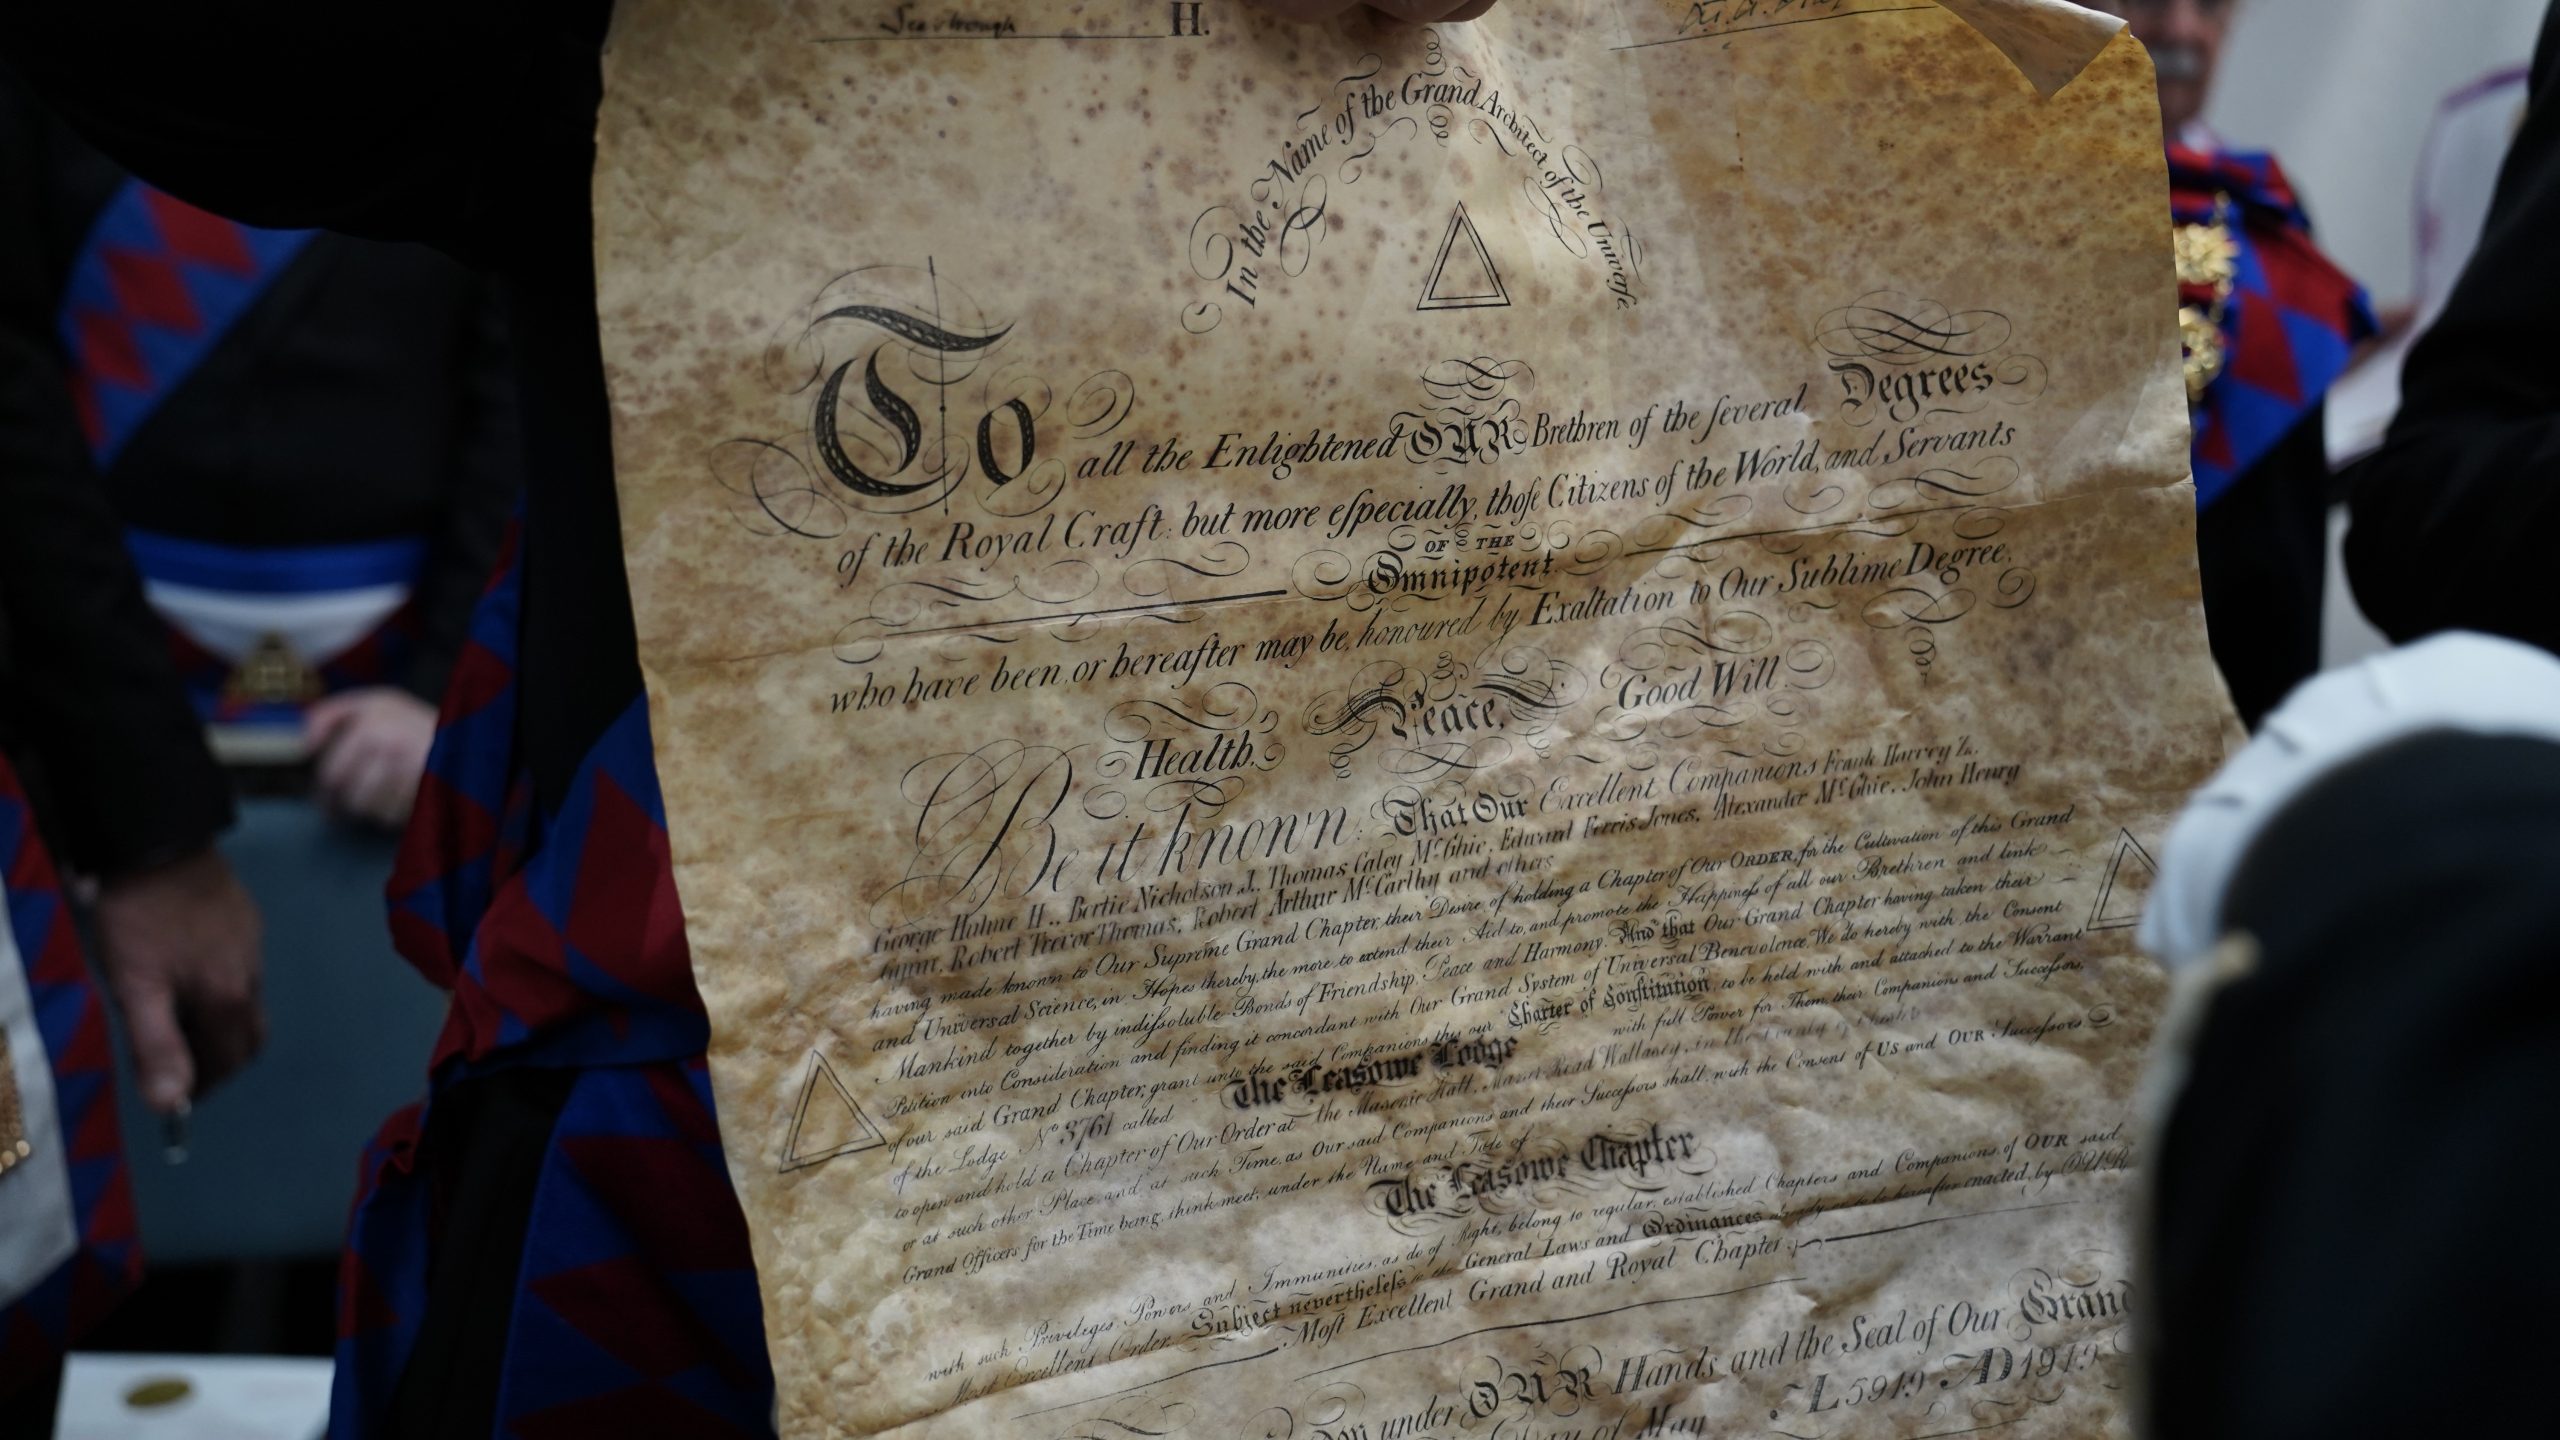 Scarbrough H.
In the Name of the Grand Architect of the Univerſe.
To all the Enlightened OUR Brethren of the ſeveral Degrees
of the Royal Craft: but more eſpecially, thoſe Citizens of the World, and Servants
OF THE
Omnipotent.
who have been, or hereafter may be, honoured by Exaltation to Our Sublime Degree.
Health, Peace, Good Will
Be it known: That Our Excellent Companions Frank Harvey Z.,
George Hulme H., Bertie Nicholson J., Thomas Caley McGhie, Edward Ferris Jones, Alexander McGhie, John Henry
Robert Trevor Thomas, Robert Arthur McCarthy and others
having made known to Our Supreme Grand Chapter, their Desire of holding a Chapter of Our ORDER, for the Cultivation of this Grand
and Universal Science, in Hopes thereby, the more to extend their Aid to, and promote the Happineſs of all our Brethren and link
Mankind together by indiſsoluble Bonds of Friendship, Peace and Harmony. And that Our Grand Chapter having taken their
Petition into Consideration and finding it concordant with Our Grand System of Universal Benevolence, We do hereby with the Consent
of our said Grand Chapter, grant unto the said Companions this our Charter of Conſtitution, to be held with and attached to the Warrant
of the Lodge No 3761 called The Leasowe Lodge with full Power for Them, their Companions and Succeſsors,
to open and hold a Chapter of Our Order at the Masonic Hall, Manor Road Wallasey, in the County of
or at such other Place, and at such Time, as Our said Companions and their Succeſsors shall, with the Consent of US and OUR Succeſsors
Grand Officers for the Time being, think meet, under the Name and Title of
The Leasowe Chapter
with such Privileges, Powers and Immunities, as do of Right, belong to regular, established Chapters and Companions of OUR said
Most Excellent Order, Subject nevertheleſs to the General Laws and Ordinances already or to be hereafter enacted, by OUR
Moſt Excellent Grand and Royal Chapter.
under OUR Hands and the Seal of Our Grand
Day of May AL 5919 AD 1919